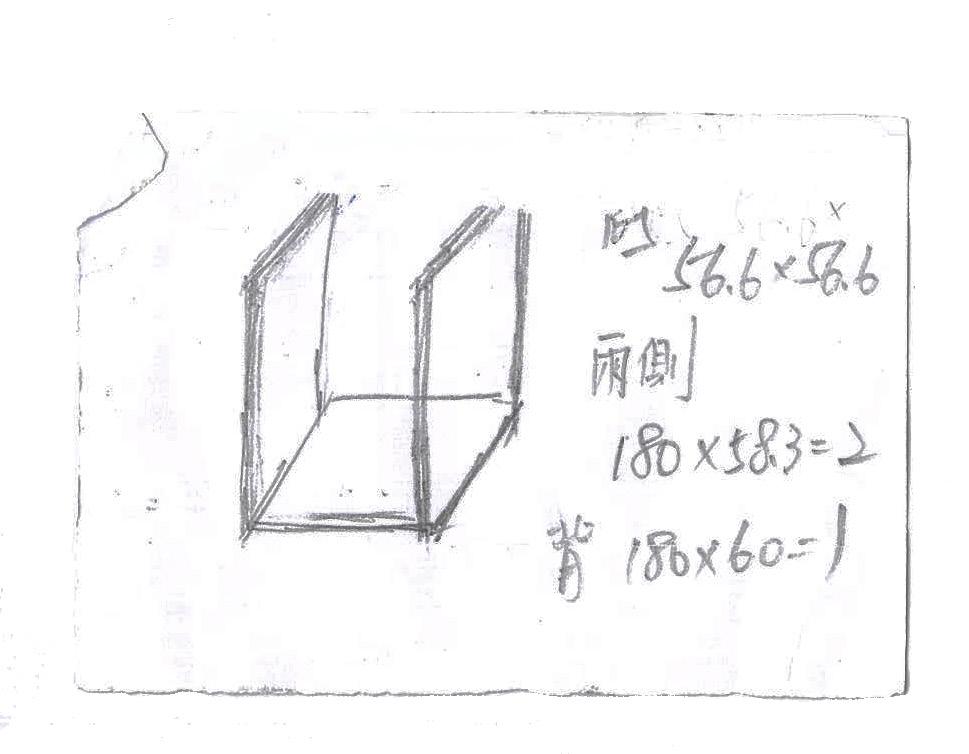 56.6×56.6
兩側
180×58.3=2
背 180×60=1